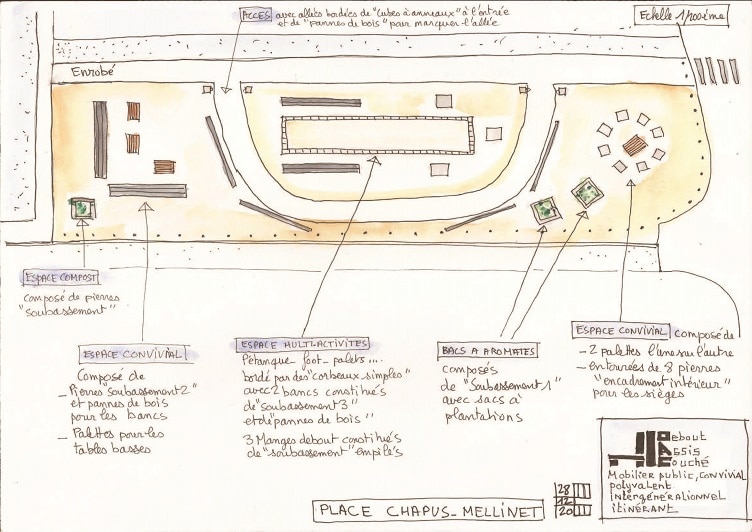 ACCES avec allées bordées de "cubes à anneaux" à l'entrée
et de "pannes de bois" pour marquer l'allée
Echelle 1/100ème
Enrobé
ESPACE COMPOST
composé de pierres
"soubassement"
ESPACE CONVIVIAL
Composé de
- Pierres "soubassement 2"
et pannes de bois
pour les bancs
- Palettes pour les
tables basses
ESPACE MULTI-ACTIVITES
Pétanque foot-palets ...
bordé par des "corbeaux simples"
avec 2 bancs constitués
de "soubassement 3"
et de "pannes de bois"
3 Manges debout constitués
de "soubassement" empilés
BACS A AROMATES
composés
de "Soubassement 1"
avec sacs à
plantations
ESPACE CONVIVIAL composé de
- 2 palettes l'une sur l'autre
- entourées de 8 pierres
"encadrement intérieur"
pour les sièges
Debout
Assis
Couché
Mobilier public, convivial
polyvalent
intergénérationnel
itinérant
PLACE CHAPUS-MELLINET
28
12
20